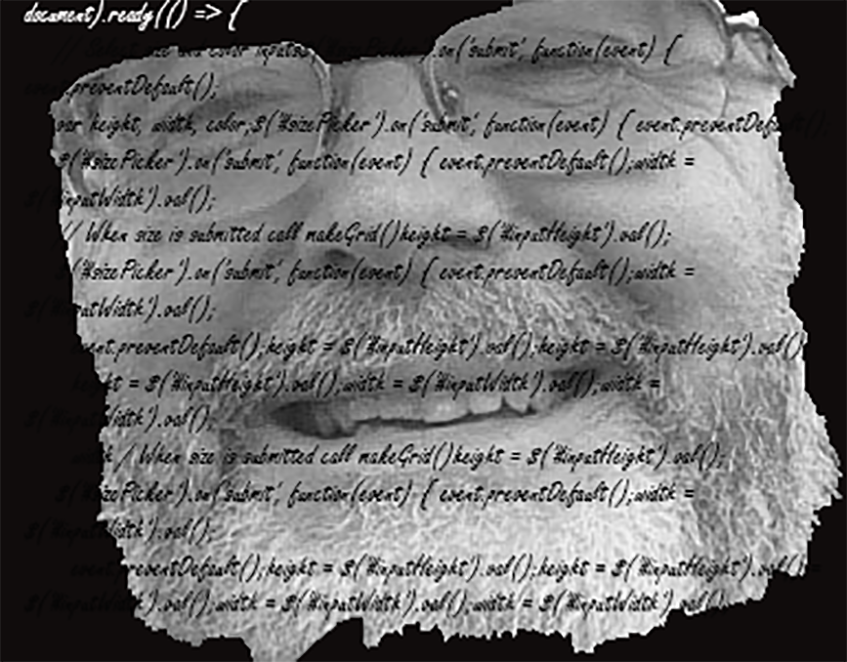 document).ready(() => {
// Select size and color inputs$('#sizePicker').on('submit', function(event) {
event.preventDefault();
var height, width, color;$('#sizePicker').on('submit', function(event) { event.preventDefault();
$('#sizePicker').on('submit', function(event) { event.preventDefault();width =
$('#inputWidth').val();
// When size is submitted call makeGrid()height = $('#inputHeight').val();
$('#sizePicker').on('submit', function(event) { event.preventDefault();width =
$('#inputWidth').val();
event.preventDefault();height = $('#inputHeight').val();height = $('#inputHeight').val();
height = $('#inputHeight').val();width = $('#inputWidth').val();width =
$('#inputWidth').val();
width / When size is submitted call makeGrid()height = $('#inputHeight').val();
$('#sizePicker').on('submit', function(event) { event.preventDefault();width =
$('#inputWidth').val();
event.preventDefault();height = $('#inputHeight').val();height = $('#inputHeight').val();=
$('#inputWidth').val();width = $('#inputWidth').val();width = $('#inputWidth').val();